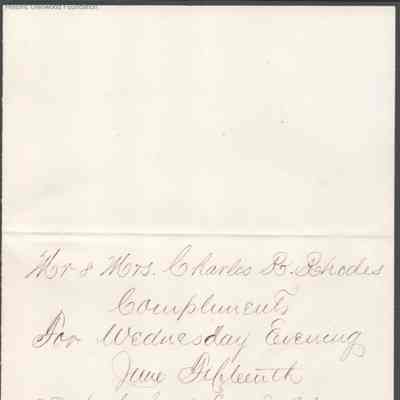 Historic Glenwood Foundation.
Mr & Mrs. Charles B. Rhodes
Compliments
For Wednesday Evening
June Fifteenth